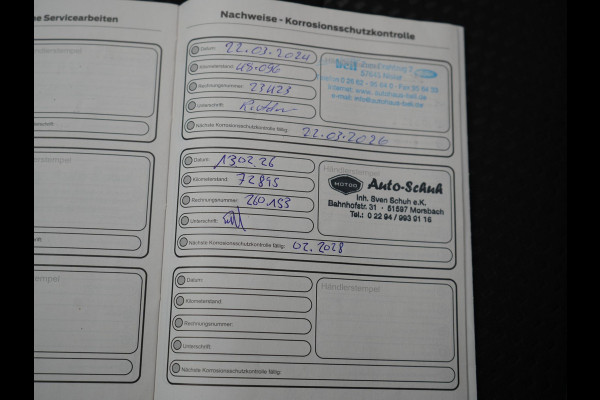 ne Servicearbeiten
Nachweise - Korrosionsschutzkontrolle
Datum: 22.03.2024
Kilometerstand: 48.096
Rechnungsnummer: 23423
Unterschrift:
57641
www.autohaus-bell.de
e-mail: info@autohaus-bell.de
Nächste Korrosionsschutzkontrolle fällig: 22.03.2026
Händlerstempel
Datum: 13.02.26
Kilometerstand: 72895
Rechnungsnummer: 260153
Unterschrift:
MOTOO Auto-Schuh
Inh. Sven Schuh e.K.
Bahnhofstr. 31 · 51597 Morsbach
Tel.: 0 22 94 / 993 91 16
Nächste Korrosionsschutzkontrolle fällig: 02.2028
Händlerstempel
Datum:
Kilometerstand:
Rechnungsnummer:
Unterschrift:
Händlerstempel
Nächste Korrosionsschutzkontrolle fällig: